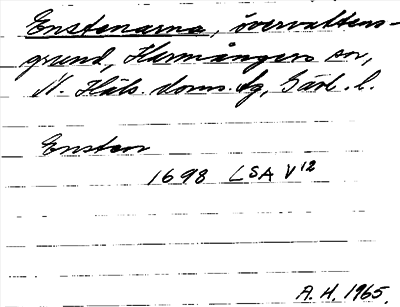 Enstenarna, övervattens-
grund, Harmångers sn,
N. Häls. doms. tg, Gävl. l.
Ensten
1698 LSA V12
A. H. 1965.